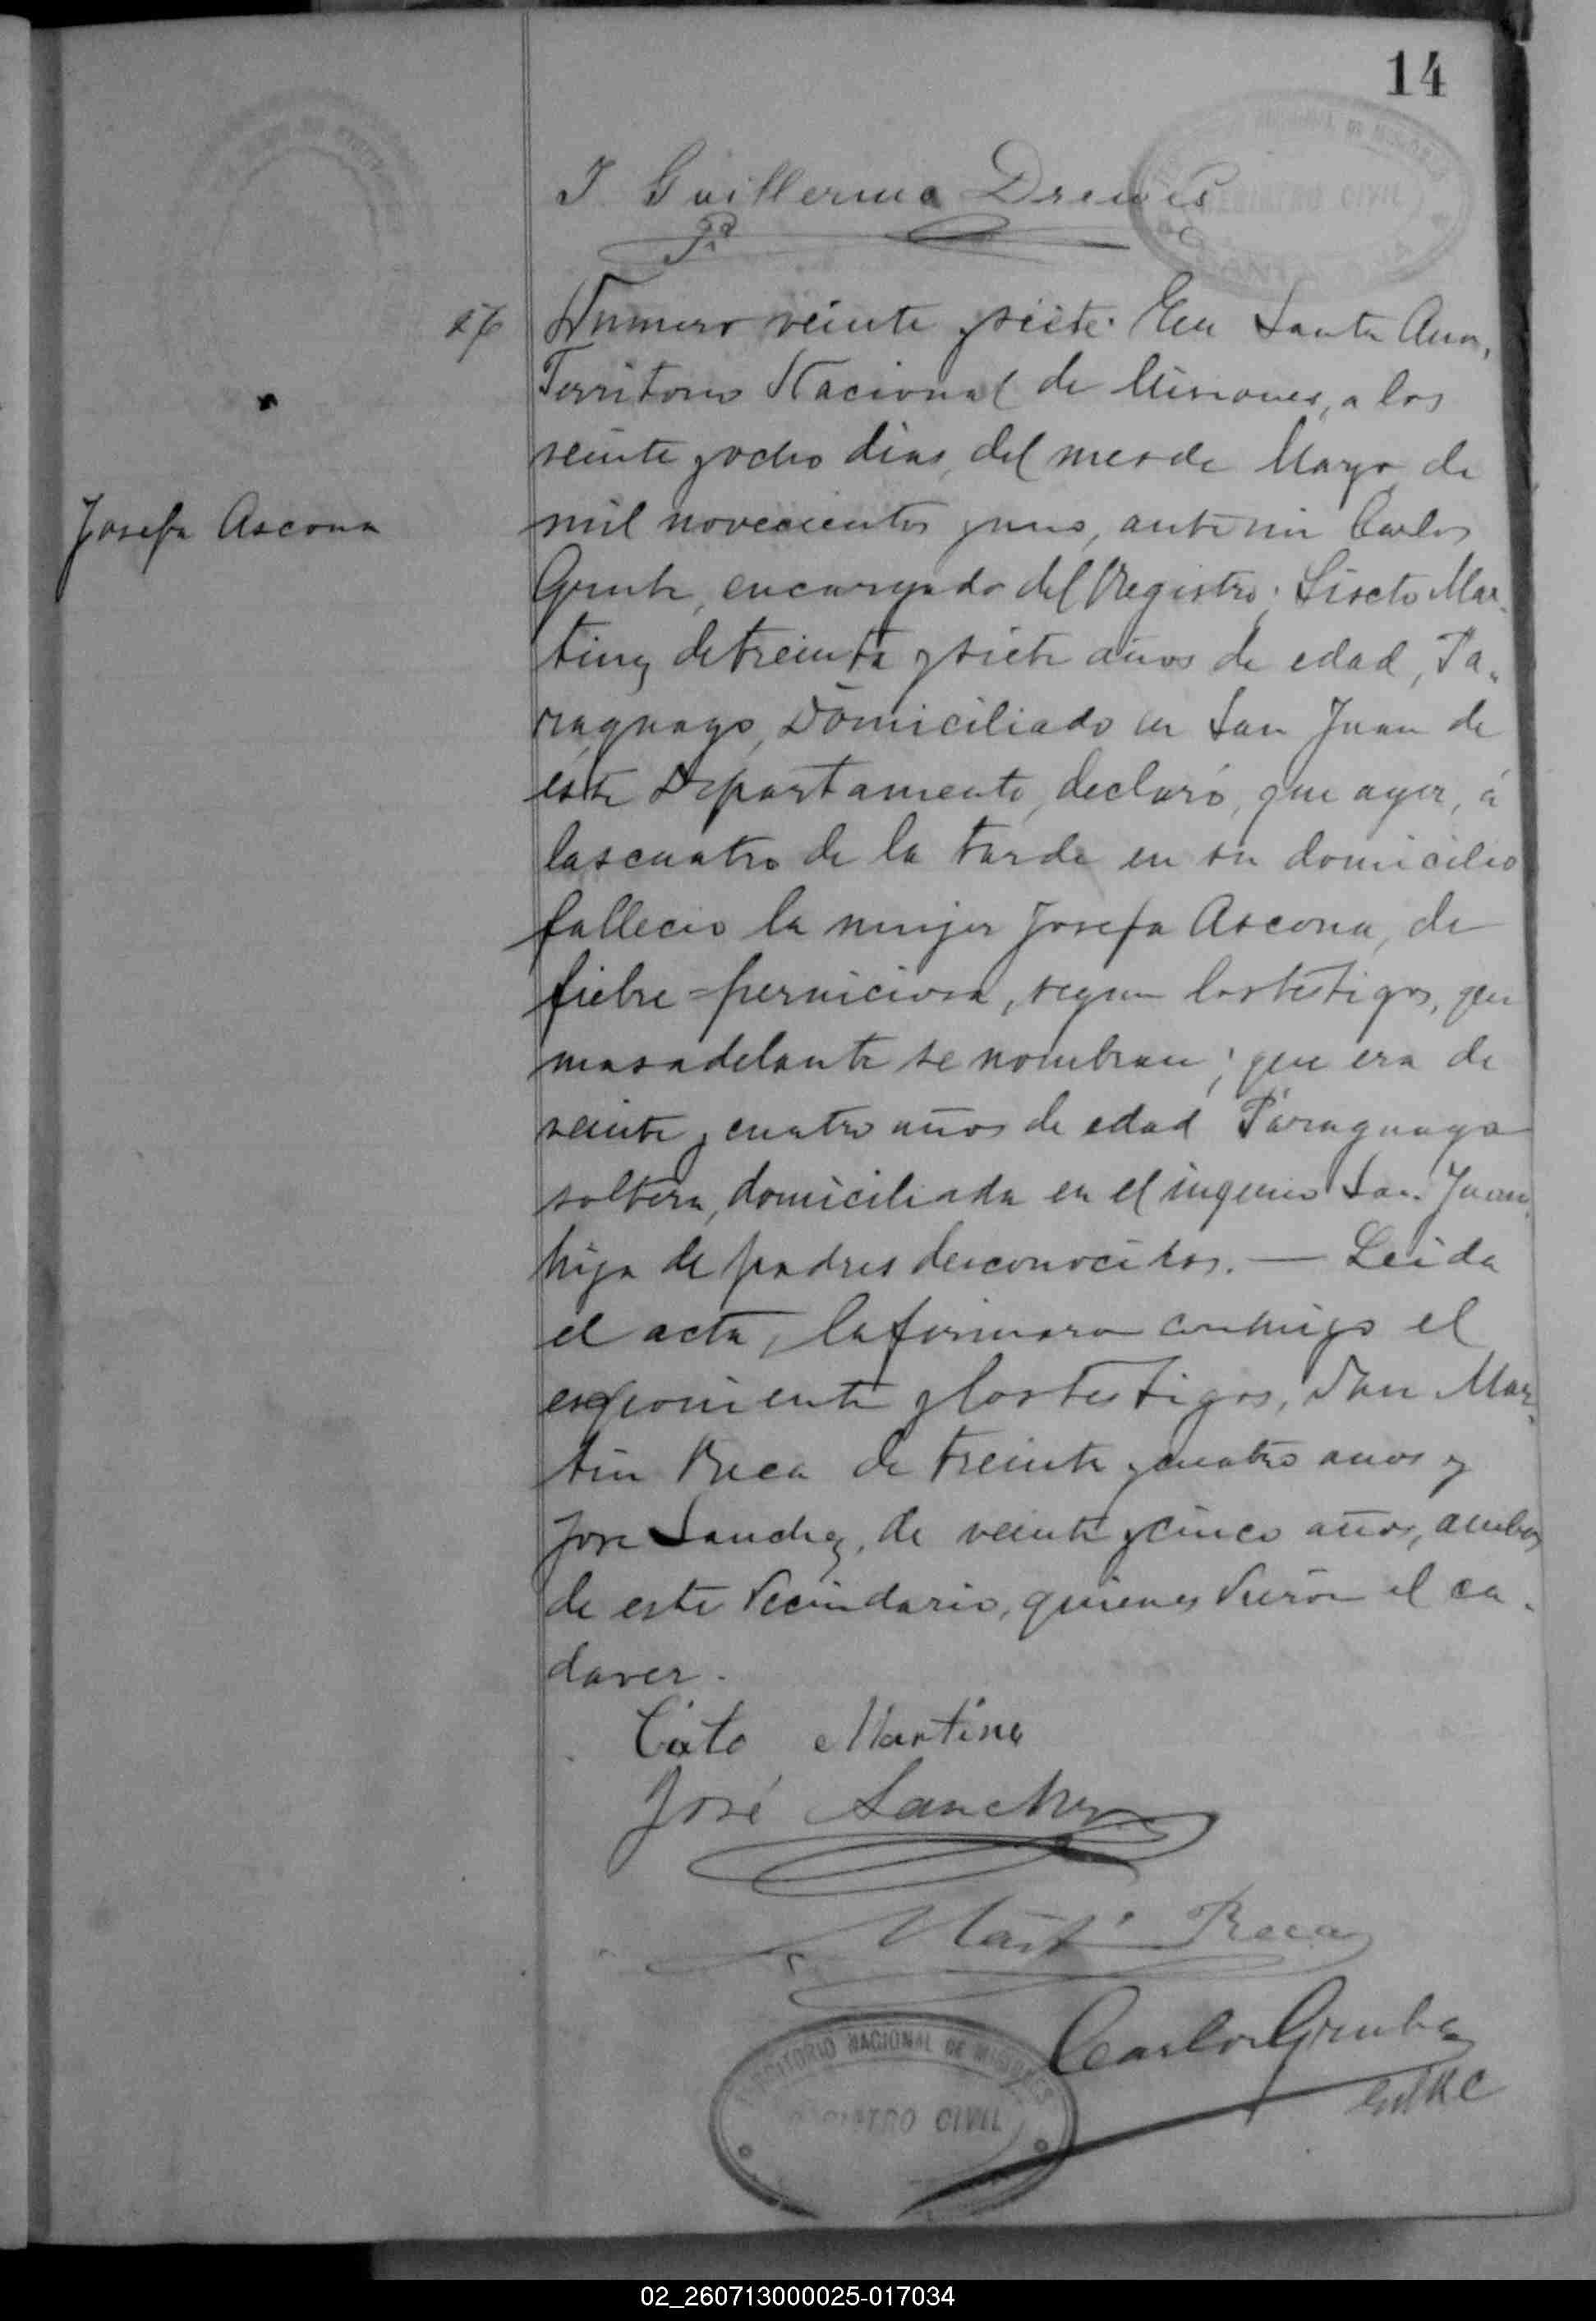 14
J. Guillermo Drewes
REGISTRO CIVIL
27
Numero veinte y siete. En Santa Ana,
Territorio Nacional de Misiones, a los
veinte y ocho dias, del mes de Mayo de
mil novecientos y uno, ante mi Carlos
Josefa Ascona
Grube, encargado del Registro; Siscto Mar-
tinz de treinta y siete años de edad, Pa-
raguayo, Domiciliado en San Juan de
éste Departamento, declaró, que ayer, á
las cuatro de la tarde en su domicilio
fallecio la mujer Josefa Ascona, de
fiebre=perniciosa, segun los testigos, que
mas adelante se nombran; que era de
veinte y cuatro años de edad Paraguaya
soltera, domiciliada en el ingenio San Juan,
hija de padres desconocidos. — Leida
el acta, la firmaron conmigo el
esponiente y los testigos, Don Mar-
tin Reca de treinta y cuatro anos y
Jose Sanchez, de veinte y cinco años, ambos
de este Vecindario, quienes vieron el ca-
daver.
Martinez
José Sanchez
Reca
TERRITORIO NACIONAL DE MISIONES
REGISTRO CIVIL
Carlos Grube
02_260713000025-017034